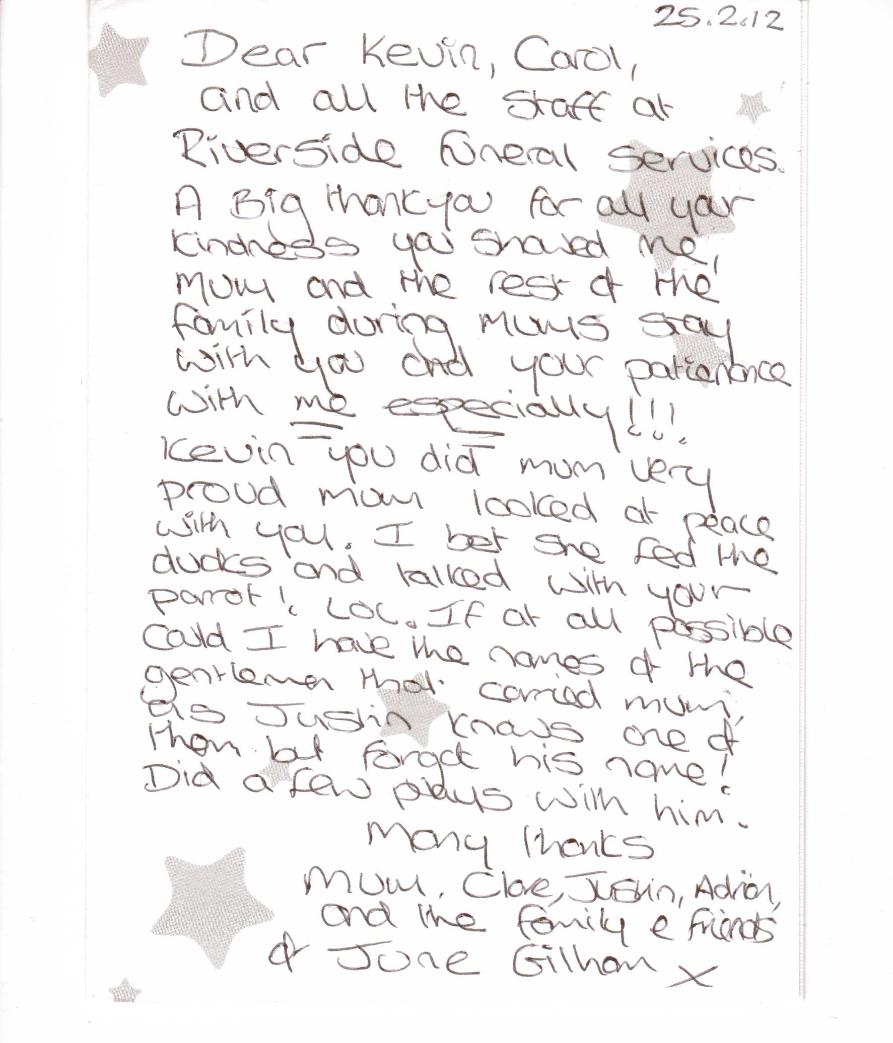 25.2.12
Dear Kevin, Carol,
and all the staff at
Riverside Funeral Services.
A Big thankyou for all your
kindness you showed me,
mum and the rest of the
family during mums stay
with you and your patienance
with me especially!!!
Kevin you did mum very
proud mum looked at peace
with you. I bet she fed the
ducks and talked with your
parrot! LOL. If at all possible
Could I have the names of the
gentlemen that carried mum,
as Justin knows one of
them but forgot his name!
Did a few plays with him.
Many thanks
Mum, Clare, Justin, Adrian,
and the family & friends
of June Gilham x